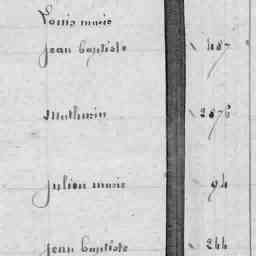 Louis marie
jean baptiste 487
Mathurin 2876
julien marie 94
jean baptiste 244